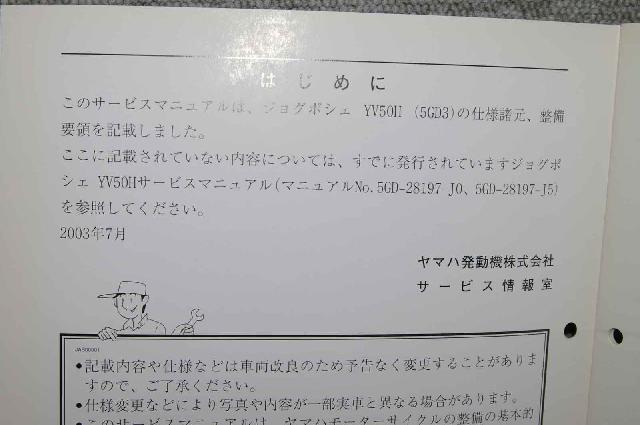 はじめに
このサービスマニュアルは、ジョグポシェ YV50H (5GD3)の仕様諸元、整備
要領を記載しました。
ここに記載されていない内容については、すでに発行されていますジョグポ
シェ YV50Hサービスマニュアル(マニュアルNo.5GD-28197-J0、5GD-28197-J5)
を参照してください。
2003年7月
ヤマハ発動機株式会社
サービス情報室
JAS00001
•記載内容や仕様などは車両改良のため予告なく変更することがありま
すので、ご了承ください。
•仕様変更などにより写真や内容が一部実車と異なる場合があります。
•このサービスマニュアルは、ヤマハモーターサイクルの整備の基本的